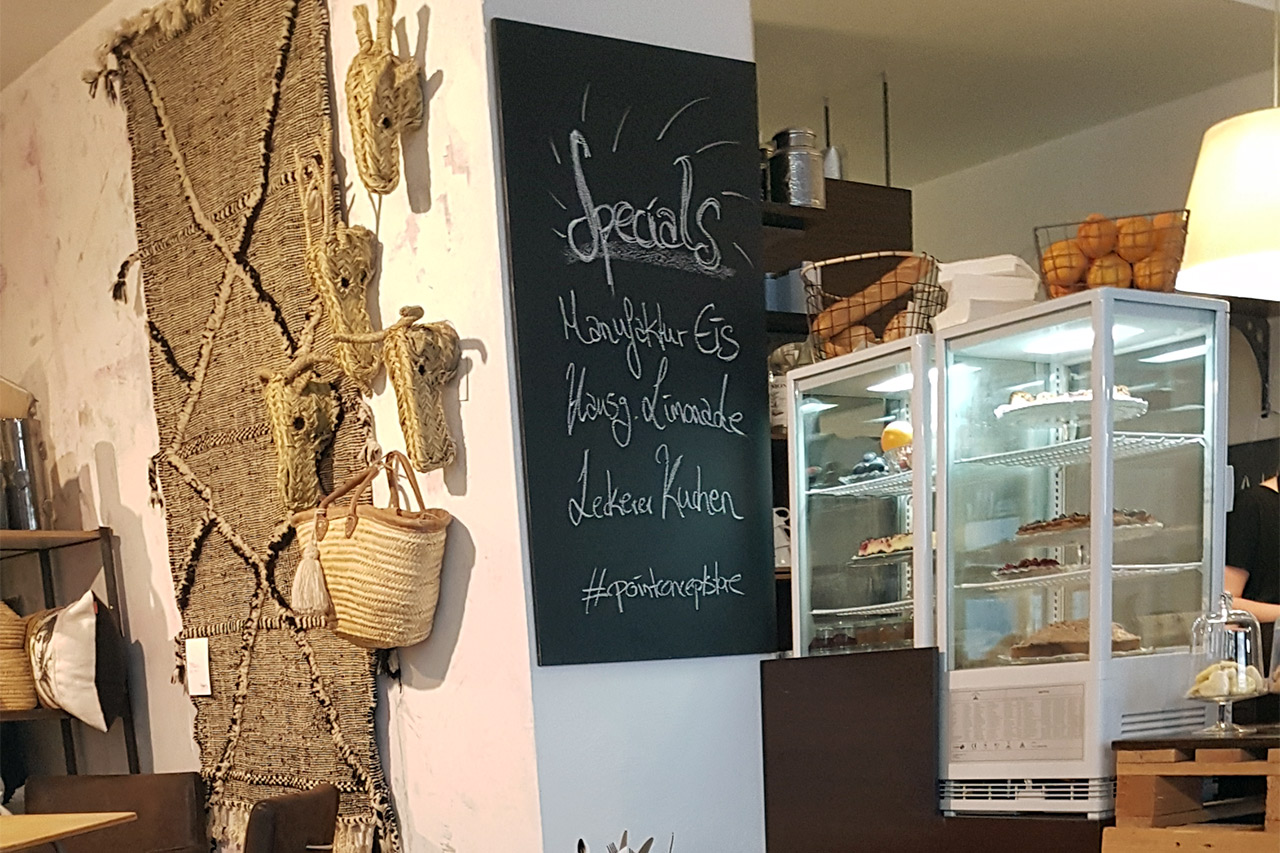 Specials
Manufaktur Eis
Hausg. Limonade
Leckerer Kuchen
#apointconceptstore